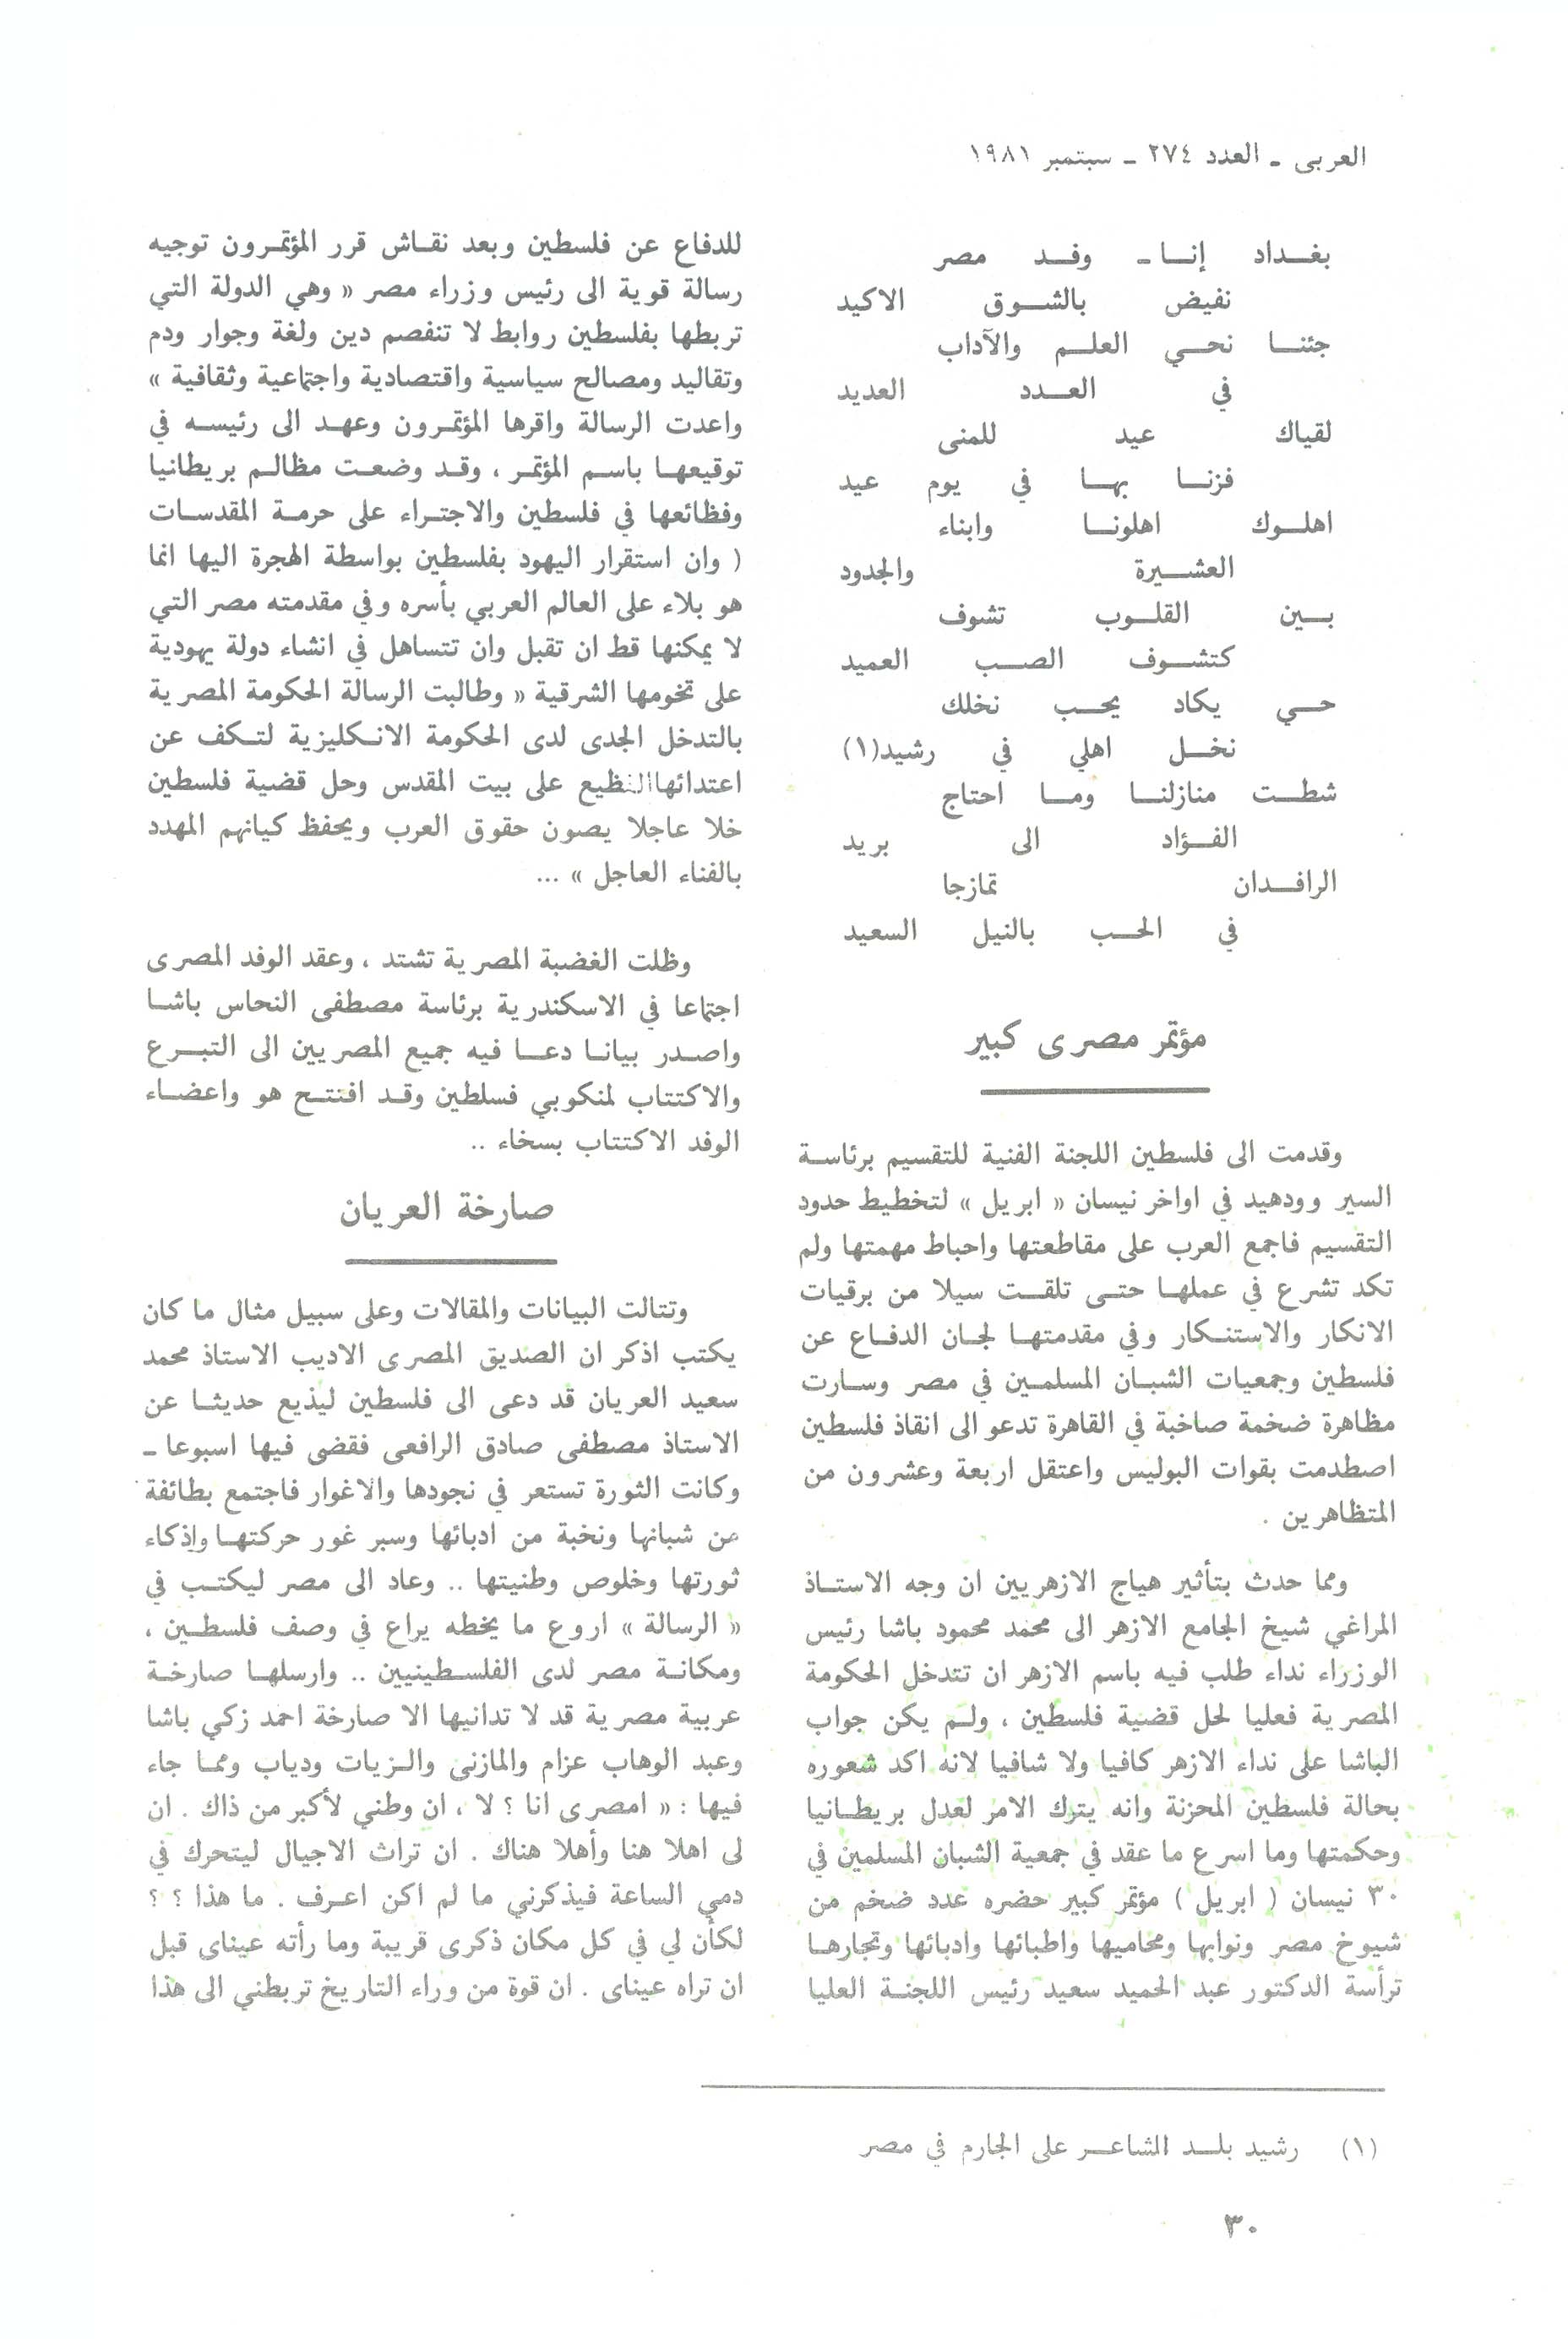 العربى ـ العدد ٢٧٤ ـ سبتمبر ١٩٨١
بغداد إنا ـ وفد مصر
نفيض بالشوق الاكيد
جئنا نحي العلم والآداب
في العدد العديد
لقياك عيد للمنى
فزنا بها في يوم عيد
اهلوك اهلونا وابناء
العشيرة والجدود
بين القلوب تشوف
كتشوف الصب العميد
حي يكاد يحب نخلك
نخل اهلي في رشيد(١)
شطت منازلنا وما احتاج
الفؤاد الى بريد
الرافدان تمازجا
في الحب بالنيل السعيد
مؤتمر مصرى كبير
وقدمت الى فلسطين اللجنة الفنية للتقسيم برئاسة
السير وودهيد في اواخر نيسان « ابريل » لتخطيط حدود
التقسيم فاجمع العرب على مقاطعتها واحباط مهمتها ولم
تكد تشرع في عملها حتى تلقت سيلا من برقيات
الانكار والاستنكار وفي مقدمتها لجان الدفاع عن
فلسطين وجمعيات الشبان المسلمين في مصر وسارت
مظاهرة ضخمة صاخبة في القاهرة تدعو الى انقاذ فلسطين
اصطدمت بقوات البوليس واعتقل اربعة وعشرون من
المتظاهرين .
ومما حدث بتأثير هياج الازهريين ان وجه الاستاذ
المراغي شيخ الجامع الازهر الى محمد محمود باشا رئيس
الوزراء نداء طلب فيه باسم الازهر ان تتدخل الحكومة
المصرية فعليا لحل قضية فلسطين ، ولم يكن جواب
الباشا على نداء الازهر كافيا ولا شافيا لانه اكد شعوره
بحالة فلسطين المحزنة وانه يترك الامر لعدل بريطانيا
وحكمتها وما اسرع ما عقد في جمعية الشبان المسلمين في
٣٠ نيسان ( ابريل ) مؤتمر كبير حضره عدد ضخم من
شيوخ مصر ونوابها ومحاميها واطبائها وادبائها وتجارها
ترأسة الدكتور عبد الحميد سعيد رئيس اللجنة العليا
للدفاع عن فلسطين وبعد نقاش قرر المؤتمرون توجيه
رسالة قوية الى رئيس وزراء مصر « وهي الدولة التي
تربطها بفلسطين روابط لا تنفصم دين ولغة وجوار ودم
وتقاليد ومصالح سياسية واقتصادية واجتماعية وثقافية »
واعدت الرسالة واقرها المؤتمرون وعهد الى رئيسه في
توقيعها باسم المؤتمر ، وقد وضعت مظالم بريطانيا
وفظائعها في فلسطين والاجتراء على حرمة المقدسات
( وان استقرار اليهود بفلسطين بواسطة الهجرة اليها انما
هو بلاء على العالم العربي بأسره وفي مقدمته مصر التي
لا يمكنها قط ان تقبل وان تتساهل في انشاء دولة يهودية
على تخومها الشرقية « وطالبت الرسالة الحكومة المصرية
بالتدخل الجدى لدى الحكومة الانكليزية لتكف عن
اعتدائها الفظيع على بيت المقدس وحل قضية فلسطين
خلا عاجلا يصون حقوق العرب ويحفظ كيانهم المهدد
بالفناء العاجل » ...
وظلت الغضبة المصرية تشتد ، وعقد الوفد المصرى
اجتماعا في الاسكندرية برئاسة مصطفى النحاس باشا
واصدر بيانا دعا فيه جميع المصريين الى التبرع
والاكتتاب لمنكوبي فسلطين وقد افتتح هو واعضاء
الوفد الاكتتاب بسخاء ..
صارخة العريان
وتتالت البيانات والمقالات وعلى سبيل مثال ما كان
يكتب اذكر ان الصديق المصرى الاديب الاستاذ محمد
سعيد العريان قد دعى الى فلسطين ليذيع حديثا عن
الاستاذ مصطفى صادق الرافعى فقضى فيها اسبوعا ـ
وكانت الثورة تستعر في نجودها والاغوار فاجتمع بطائفة
من شبانها ونخبة من ادبائها وسبر غور حركتها وإذكاء
ثورتها وخلوص وطنيتها .. وعاد الى مصر ليكتب في
« الرسالة » اروع ما يخطه يراع في وصف فلسطين ،
ومكانة مصر لدى الفلسطينيين .. وارسلها صارخة
عربية مصرية قد لا تدانيها الا صارخة احمد زكي باشا
وعبد الوهاب عزام والمازنى والزيات ودياب ومما جاء
فيها : « امصرى انا ؟ لا ، ان وطني لأكبر من ذاك . ان
لى اهلا هنا وأهلا هناك . ان تراث الاجيال ليتحرك في
دمي الساعة فيذكرني ما لم اكن اعرف . ما هذا ؟ ؟
لكأن لي في كل مكان ذكرى قريبة وما رأته عيناى قبل
ان تراه عيناى . ان قوة من وراء التاريخ تربطني الى هذا
(١) رشيد بلد الشاعر على الجارم في مصر
٣٠